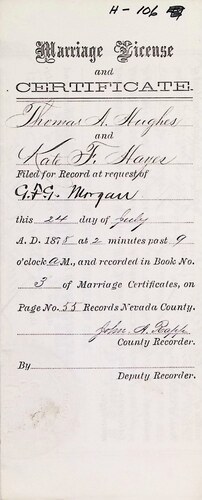 H-106
Marriage License
and
CERTIFICATE.
Thomas A. Hughes
and
Kate F. Hayes
Filed for Record at request of
G. G. Morgan
this 24 day of July
A. D. 1878 at 2 minutes past 9
o'clock A M., and recorded in Book No.
3 of Marriage Certificates, on
Page No. 55 Records Nevada County.
John A. Rapp
County Recorder.
By
Deputy Recorder.